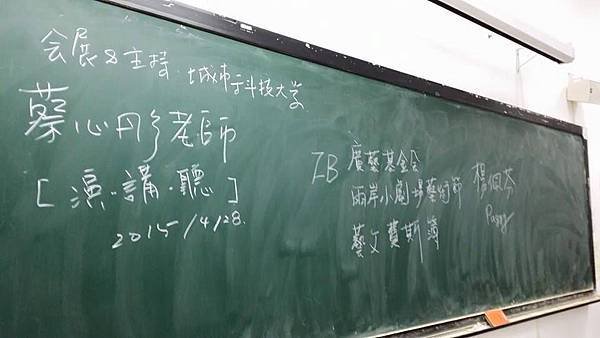 会展&主持.城市科技大学
蔡心彤老師
[演.講.聽]
2015/4/28.
廣藝基金会
兩岸小劇場藝術節
楊佩芬
藝文費斯簿